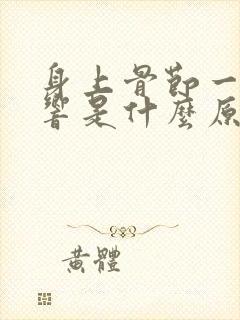 身上骨節一
響是什麼原
黃體